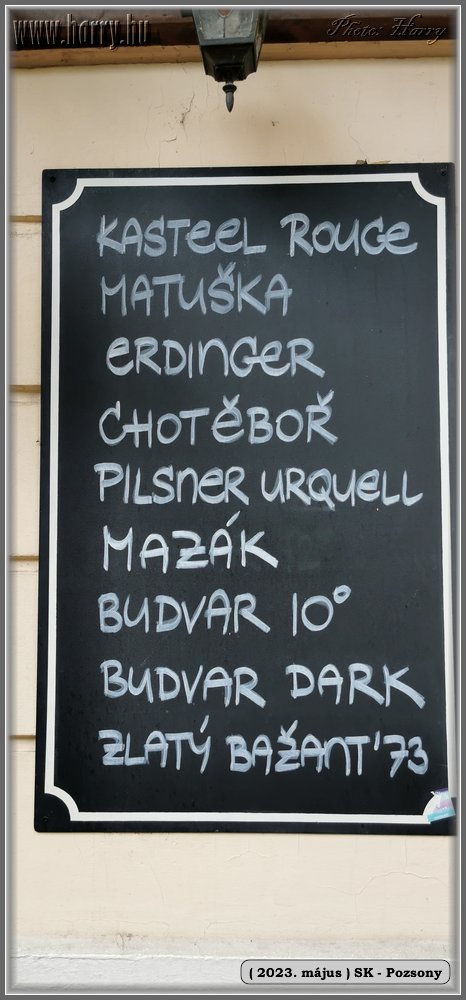 www.horry.hu
Photo: Horry
KASTEEL ROUGE
MATUŠKA
ERDINGER
CHOTĚBOŘ
PILSNER URQUELL
MAZÁK
BUDVAR 10°
BUDVAR DARK
ZLATÝ BAŽANT '73
( 2023. május ) SK - Pozsony